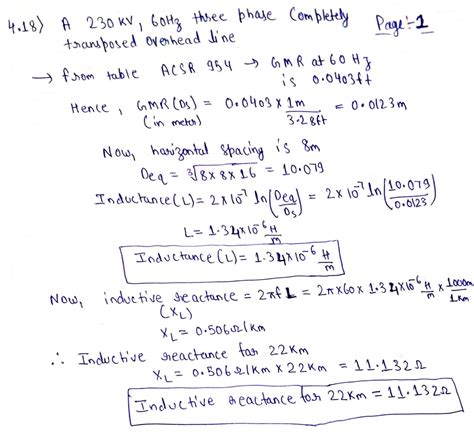 4.18) A 230 KV, 60Hz three phase Completely Page:-1
transposed overhead line
→ from table ACSR 954 → GMR at 60 Hz
is 0.0403ft
Hence, GMR(Ds) = 0.0403 × 1m/3.28ft = 0.0123m
(in meter)
Now, horizontal spacing is 8m
Deq = ∛8×8×16 = 10.079
Inductance(L) = 2×10⁻⁷ ln(Deq/Ds) = 2×10⁻⁷ ln(10.079/0.0123)
L = 1.34×10⁻⁶ H/m
Inductance(L) = 1.34×10⁻⁶ H/m
Now, inductive reactance = 2πfL = 2π×60×1.34×10⁻⁶ H/m × 1000m/1km
(XL)
XL = 0.506Ω/km
∴ Inductive reactance for 22km
XL = 0.506Ω/km × 22km = 11.132Ω
Inductive reactance for 22km = 11.132Ω